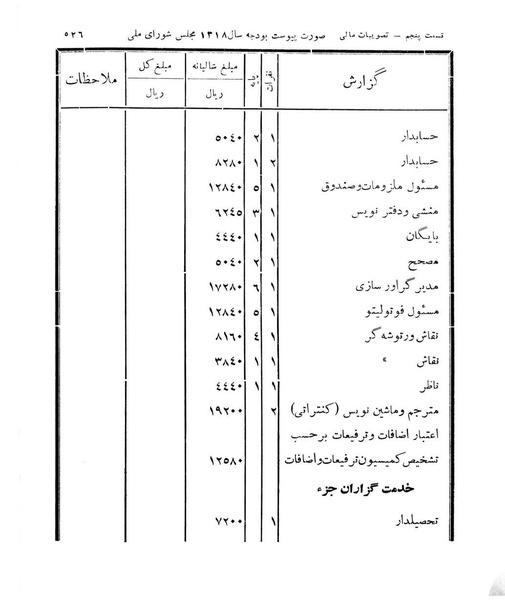 قسمت پنجم – تصویبات مالی صورت پیوست بودجه سال ۱۳۱۸ مجلس شورای ملی ۵۲۶
گزارش نفرات پایه مبلغ سالیانه ریال مبلغ کل ریال ملاحظات
حسابدار ۱ ۲ ۵۰۴۰
حسابدار ۲ ۱ ۸۲۸۰
مسئول ملزومات وصندوق ۱ ۵ ۱۲۸٤۰
منشی ودفتر نویس ۱ ۳ ۶۲٤۵
بایگان ۱ ۱ ٤٤٤۰
مصحح ۱ ۲ ۵۰٤۰
مدیر گراور سازی ۱ ۶ ۱۷۲۸۰
مسئول فوتولیتو ۱ ۵ ۱۲۸٤۰
نقاش ورتوشه گر ۱ ٤ ۸۱۶۰
نقاش » ۱ ۱ ۳۸٤۰
ناظر ۱ ۱ ٤٤٤۰
مترجم وماشین نویس (کنتراتی) ۲ ۱۹۲۰۰
اعتبار اضافات و ترفیعات برحسب
تشخیص کمیسیون ترفیعات واضافات ۱۲۵۸۰
خدمت گزاران جزء
تحصیلدار ۱ ۷۲۰۰